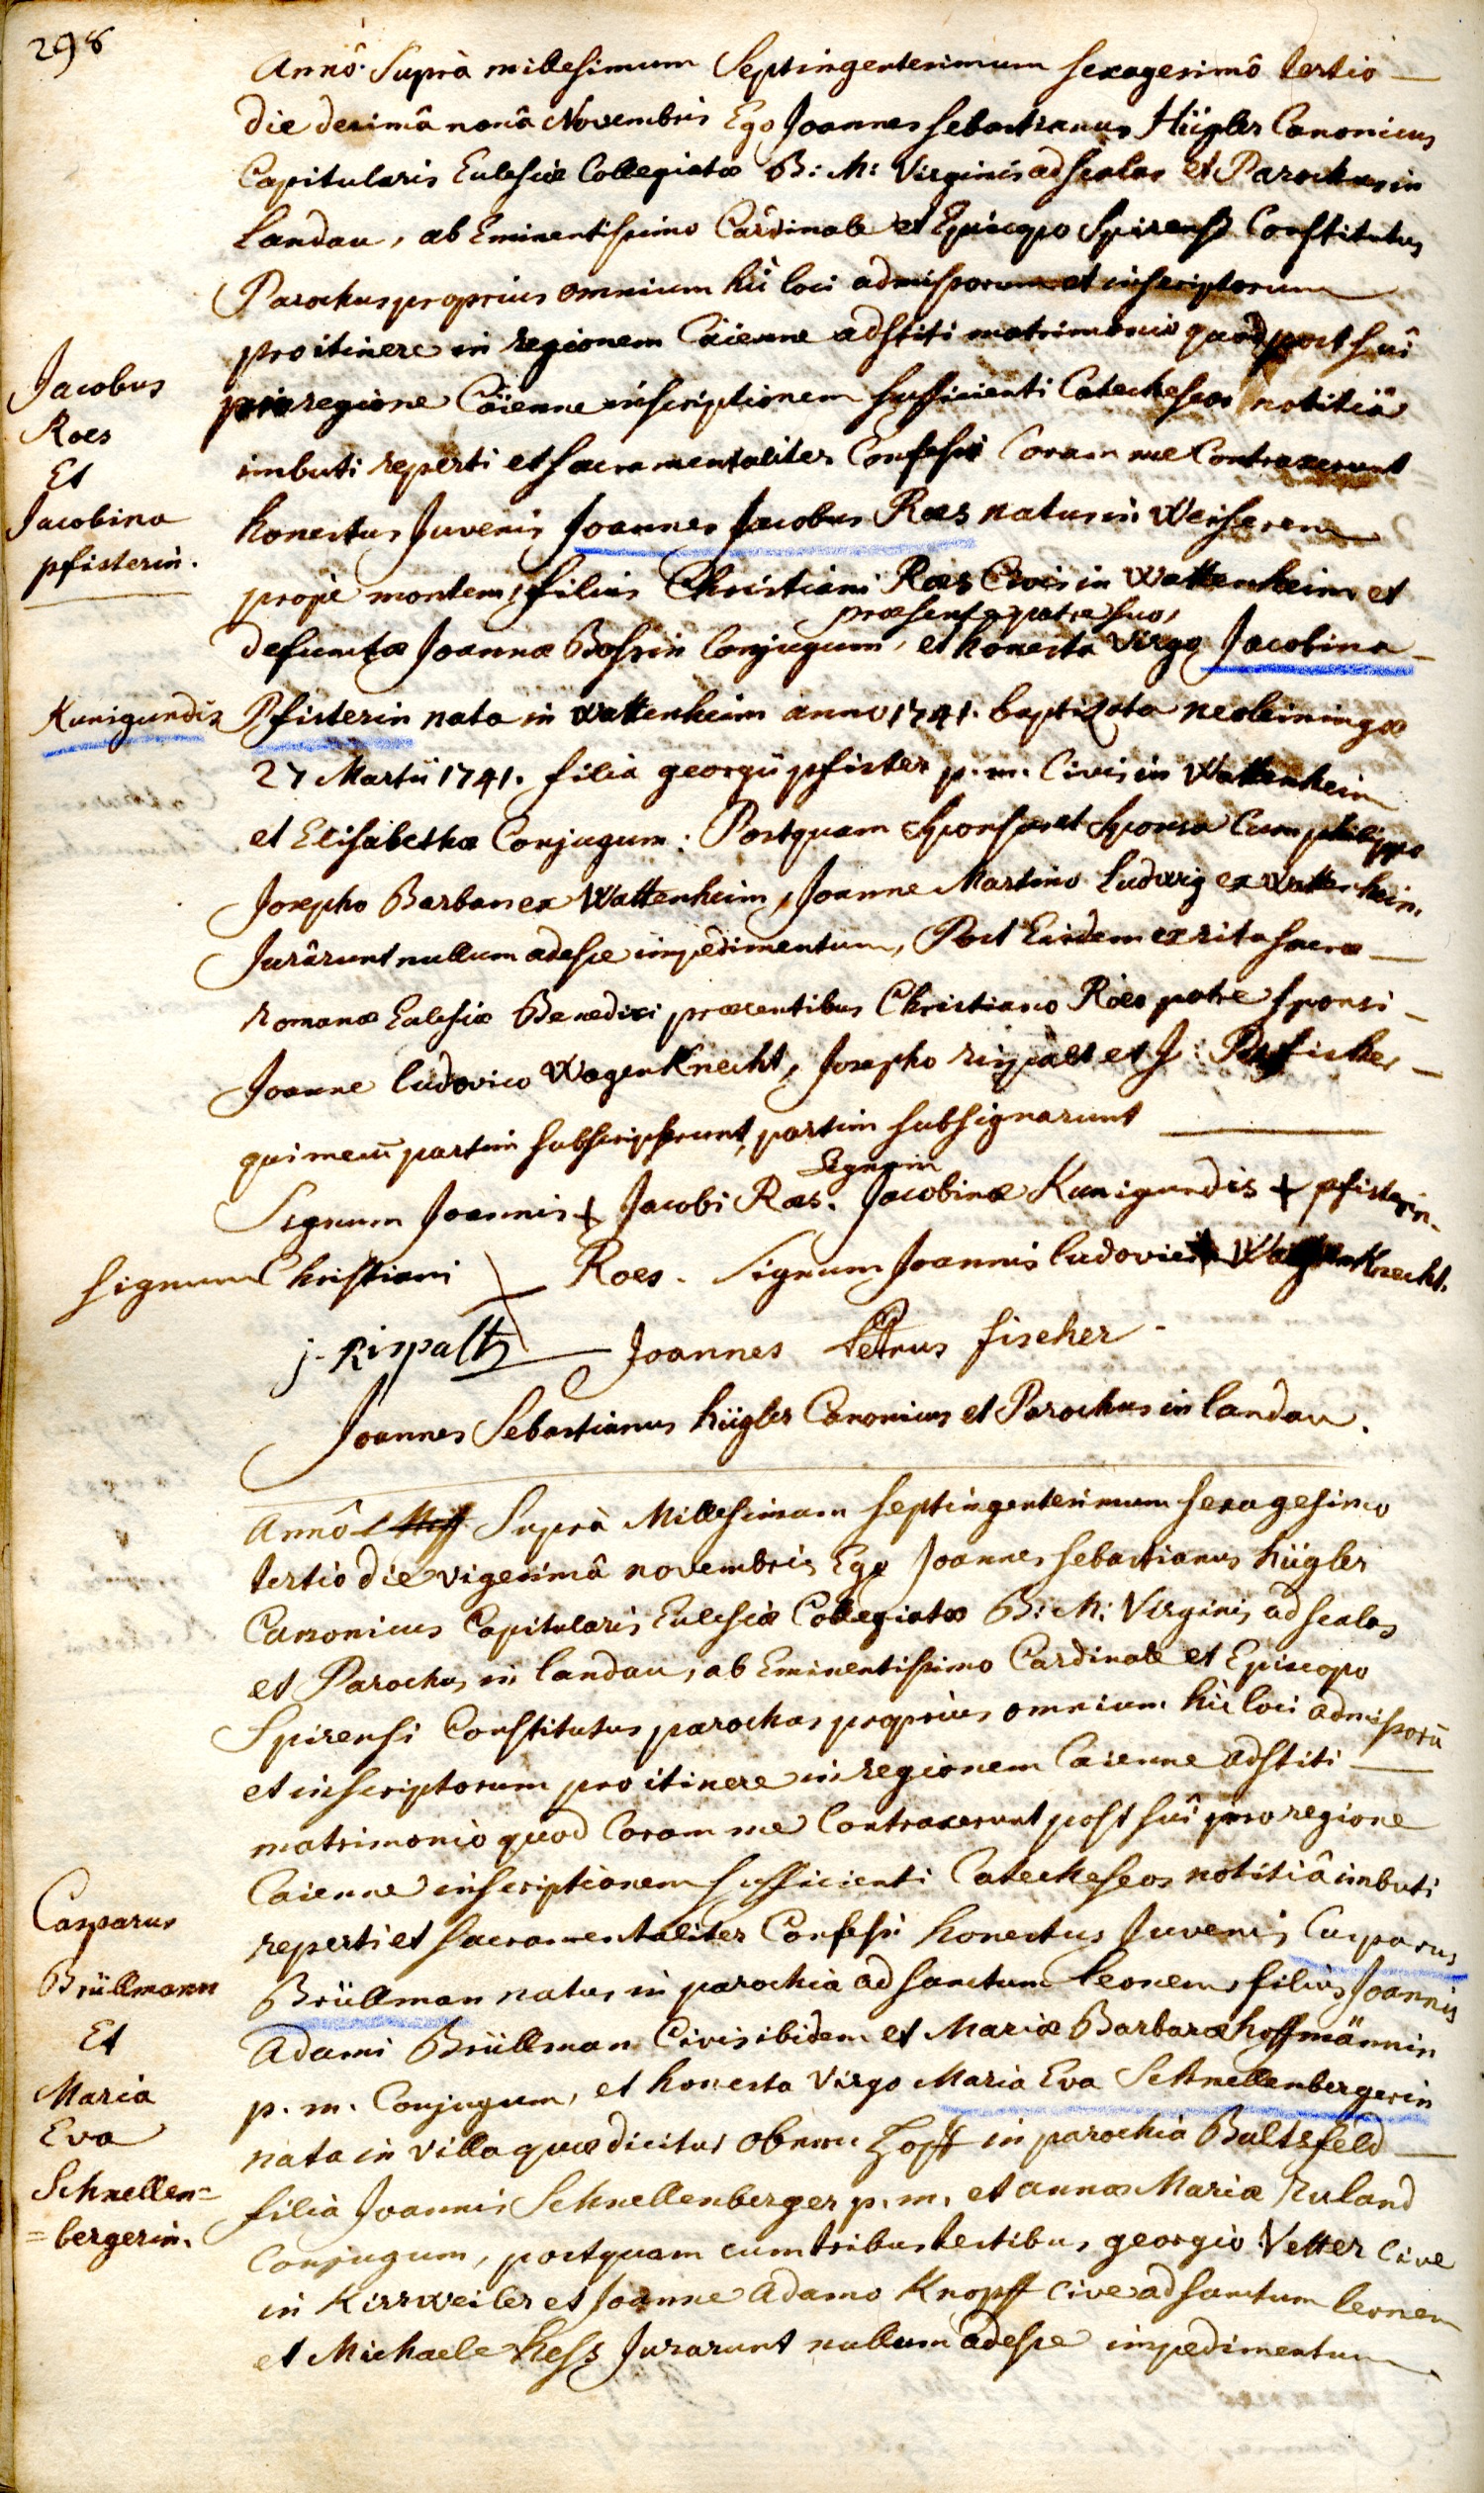 298
Annô Suprà millesimum Septingentesimum sexagesimô tertio —
die decimâ nonâ Novembris Ego Joannes sebastianus Hügler Canonicus
Capitularis Ecclesiæ Collegiatæ B: M: Virginis ad scalas et Parochus in
Landau, ab Eminentissimo Cardinale et Episcopo Spirensi Constitutus
Parochus proprius omnium hìc loci admissorum et inscriptorum
pro itinere in regionem Caienne adstiti matrimonio quod post suî
pro regione Caienne inscriptionem sufficienti Catecheseos notitiâ
imbuti reperti et sacramentaliter Confessi Coram me Contraxerunt
Jacobus
Roes
Et
Jacobina
pfisterin.
honestus Juvenis Joannes Jacobus Roes natus in Weisseren
propè montem, filius Christiani Roes Civis in Wattenheim et
præsente patre suo,
defunctæ Joannæ Bossin Conjugum, et honesta virgo Jacobina —
Kunigundis
Pfisterin nata in Wattenheim anno 1741. baptizata neoleiningæ
27 Martii 1741. filia georgii pfister p. m. Civis in Wattenheim
et Elisabethæ Conjugum: Postquam Sponsus et Sponsa Cum philippo
Josepho Barban ex Wattenheim, Joanne Martino Ludwig ex Wattenheim.
Jurârunt nullum adesse impedimentum, Post Eisdem ex ritu sacræ —
romanæ Ecclesiæ Benedixi præsentibus Christiano Roes patre sponsi —
Joanne ludovico WagenKnecht, Josepho rispalt et J: P fischer —
qui mecũ partim subscripserunt, partim subsignarunt —
Signum Joannis + Jacobi Roes. Signum Jacobinæ Kunigundis + pfisterin.
Signum Christiani + Roes. Signum Joannis ludovici + WagenKnecht.
j. Rispalt Joannes Petrus fischer
Joannes Sebastianus hügler Canonicus et Parochus in landau.
Annô Suprà Millesimum septingentesimum sexagesimo
tertio die vigesimâ novembris Ego Joannes sebastianus hügler
Canonicus Capitularis Ecclesiæ Collegiatæ B: M: Virginis ad scalas
et Parochus in landau, ab Eminentissimo Cardinale et Episcopo
Spirensi Constitutus parochus proprius omnium hìc loci admissorũ
et inscriptorum pro itinere in regionem Caienne adstiti —
matrimonio quod Coram me Contraxerunt post suî pro regione
Caienne inscriptionem sufficienti Catecheseos notitiâ imbuti
reperti et sacramentaliter Confessi honestus Juvenis Casparus
Casparus
Brüllmann
Et
Maria
Eva
Schnellen=
=bergerin.
Brüllman natus in parochia ad sanctum leonem, filius Joannis
Adami Brüllman Civis ibidem et Mariæ Barbaræ hoffmännin
p. m. Conjugum, et honesta virgo Maria Eva Schnellenbergerin
nata in villa quæ dicitur obere hoff in parochia Bultsfeld —
filia Joannis Schnellenberger p. m. et annæ Mariæ ruland
Conjugum, postquam cum tribus testibus, georgio Vetter Cive
in Kirrweiler et Joanne Adamo Knopff cive ad sanctum leonem
et Michaele hess Jurarunt nullum adesse impedimentum.